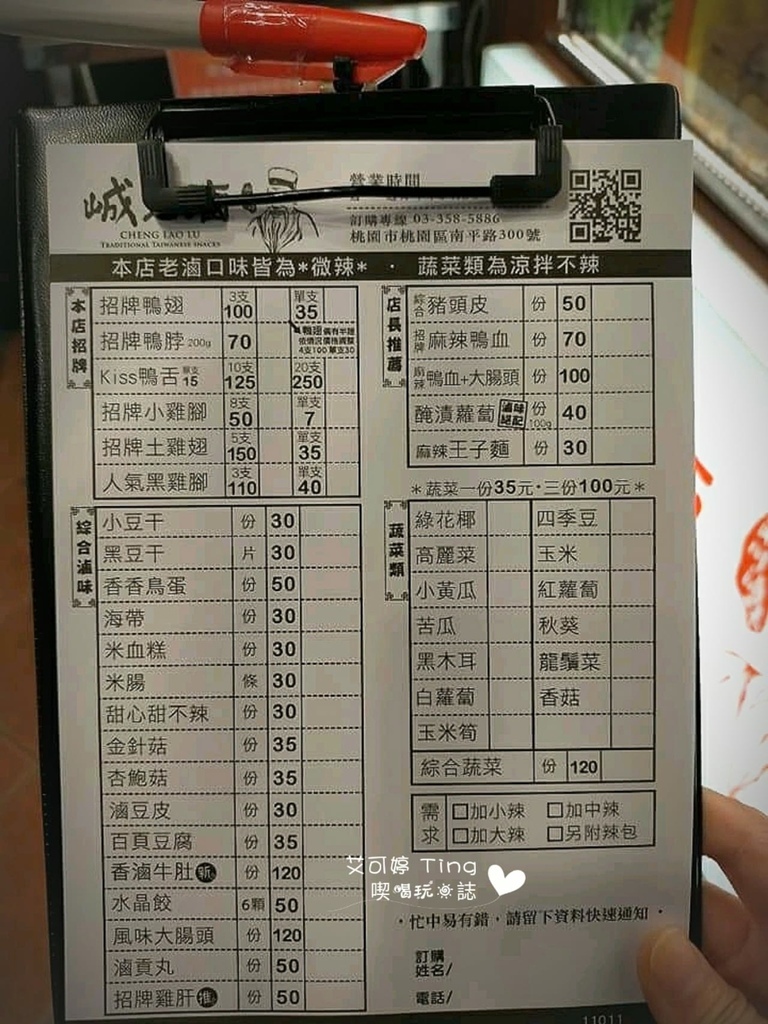 誠
CHENG LAO LU
TRADITIONAL TAIWANESE SNACKS
營業時間
訂購專線 03-358-5886
桃園市桃園區南平路300號
本店老滷口味皆為*微辣* · 蔬菜類為涼拌不辣
本店招牌
招牌鴨翅 3支 100 單支 35
招牌鴨脖 200g 70 鴨翅偶有半翅 依情況價格調整 4支100 單支30
Kiss鴨舌 單支 15 10支 125 20支 250
招牌小雞腳 8支 50 單支 7
招牌土雞翅 5支 150 單支 35
人氣黑雞腳 3支 110 單支 40
綜合滷味
小豆干 份 30
黑豆干 片 30
香香鳥蛋 份 50
海帶 份 30
米血糕 份 30
米腸 條 30
甜心甜不辣 份 30
金針菇 份 35
杏鮑菇 份 35
滷豆皮 份 30
百頁豆腐 份 35
香滷牛肚 新 份 120
水晶餃 6顆 50
風味大腸頭 份 120
滷貢丸 份 50
招牌雞肝 推 份 50
店長推薦
綜合 豬頭皮 份 50
招牌 麻辣鴨血 份 70
麻辣 鴨血+大腸頭 份 100
醃漬蘿蔔 份 100g 40
麻辣王子麵 份 30
*蔬菜一份35元·三份100元*
蔬菜類
綠花椰 四季豆
高麗菜 玉米
小黃瓜 紅蘿蔔
苦瓜 秋葵
黑木耳 龍鬚菜
白蘿蔔 香菇
玉米筍
綜合蔬菜 份 120
需求
□加小辣 □加中辣
□加大辣 □另附辣包
艾可婷 Ting
喫喝玩樂誌
·忙中易有錯，請留下資料快速通知·
訂購
姓名/
電話/
11011